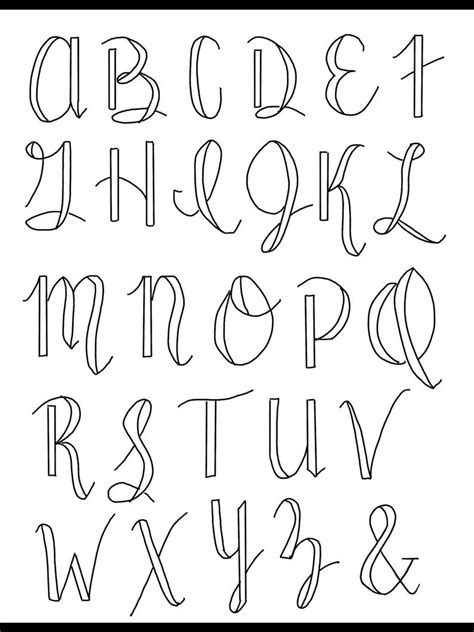 A B C D E F
G H I J K L
M N O P Q
R S T U V
W X Y Z &